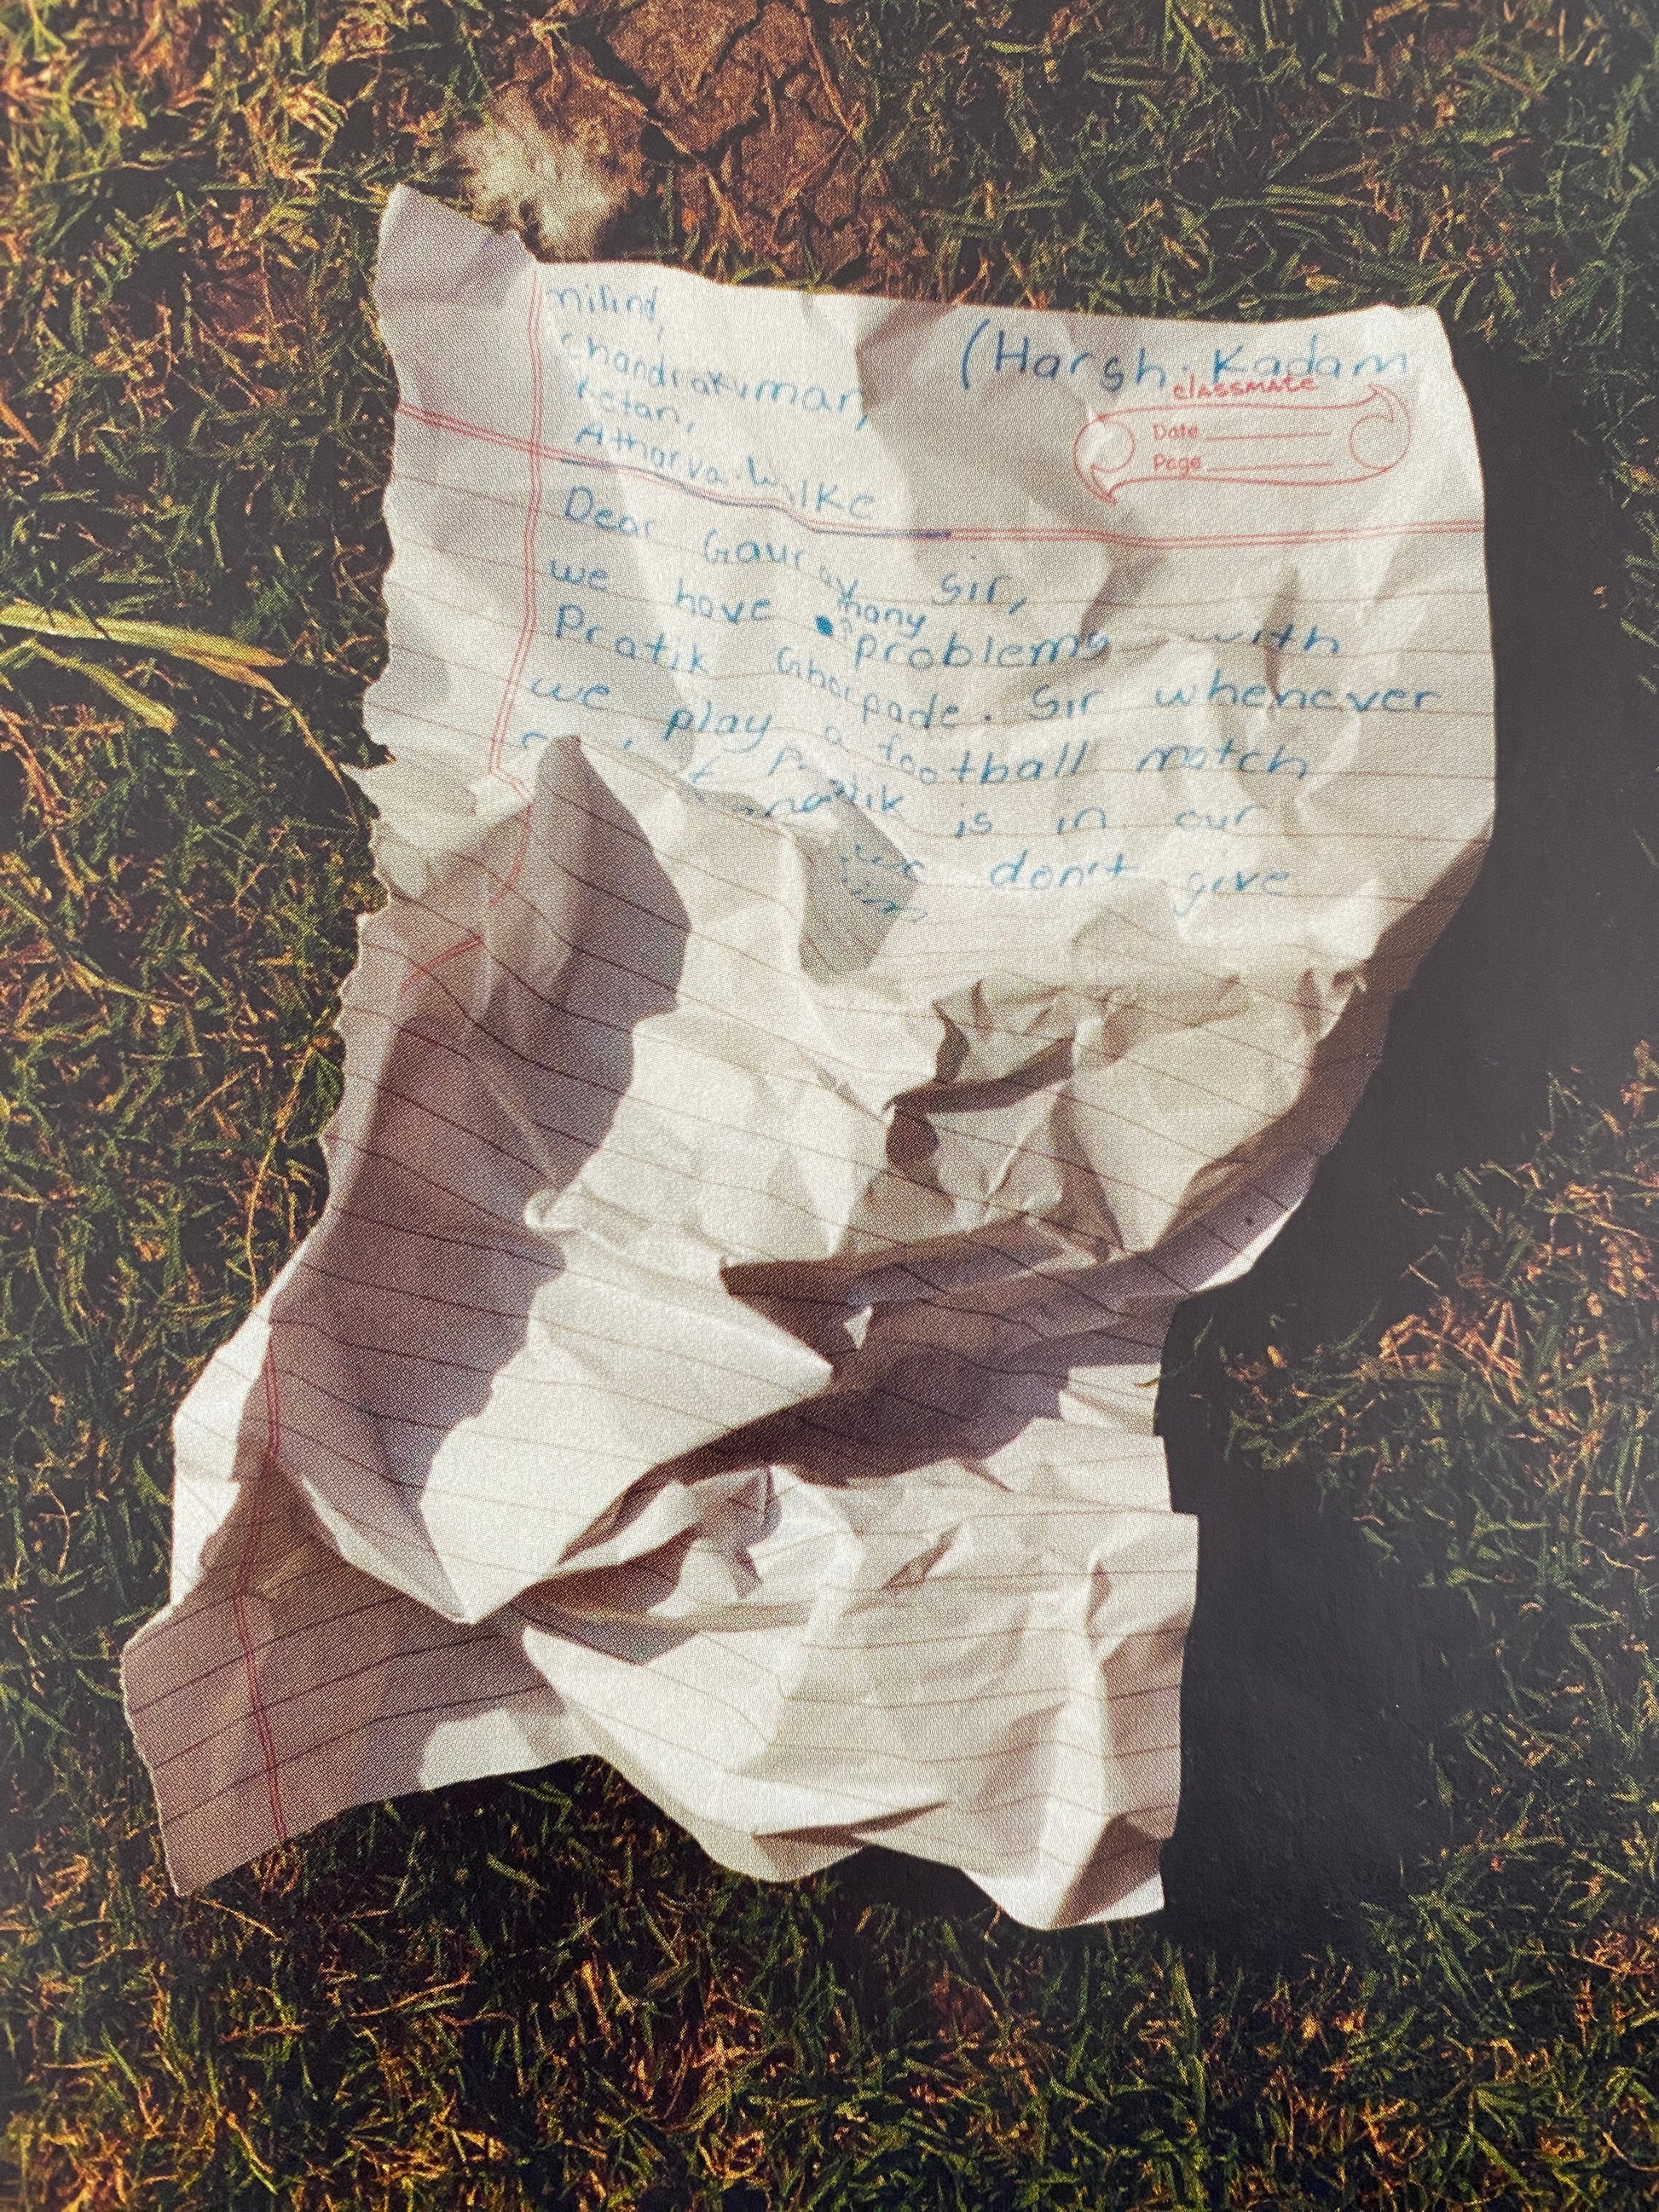 milind,
(Harsh. Kadam
Chandrakumar,
Ketan,
Atharva. Wilke
classmate
Date
Page
Dear Gaurav sir,
we have many problems with
Pratik Ghorpade. Sir whenever
we play a football match
Pratik is in our
don't give